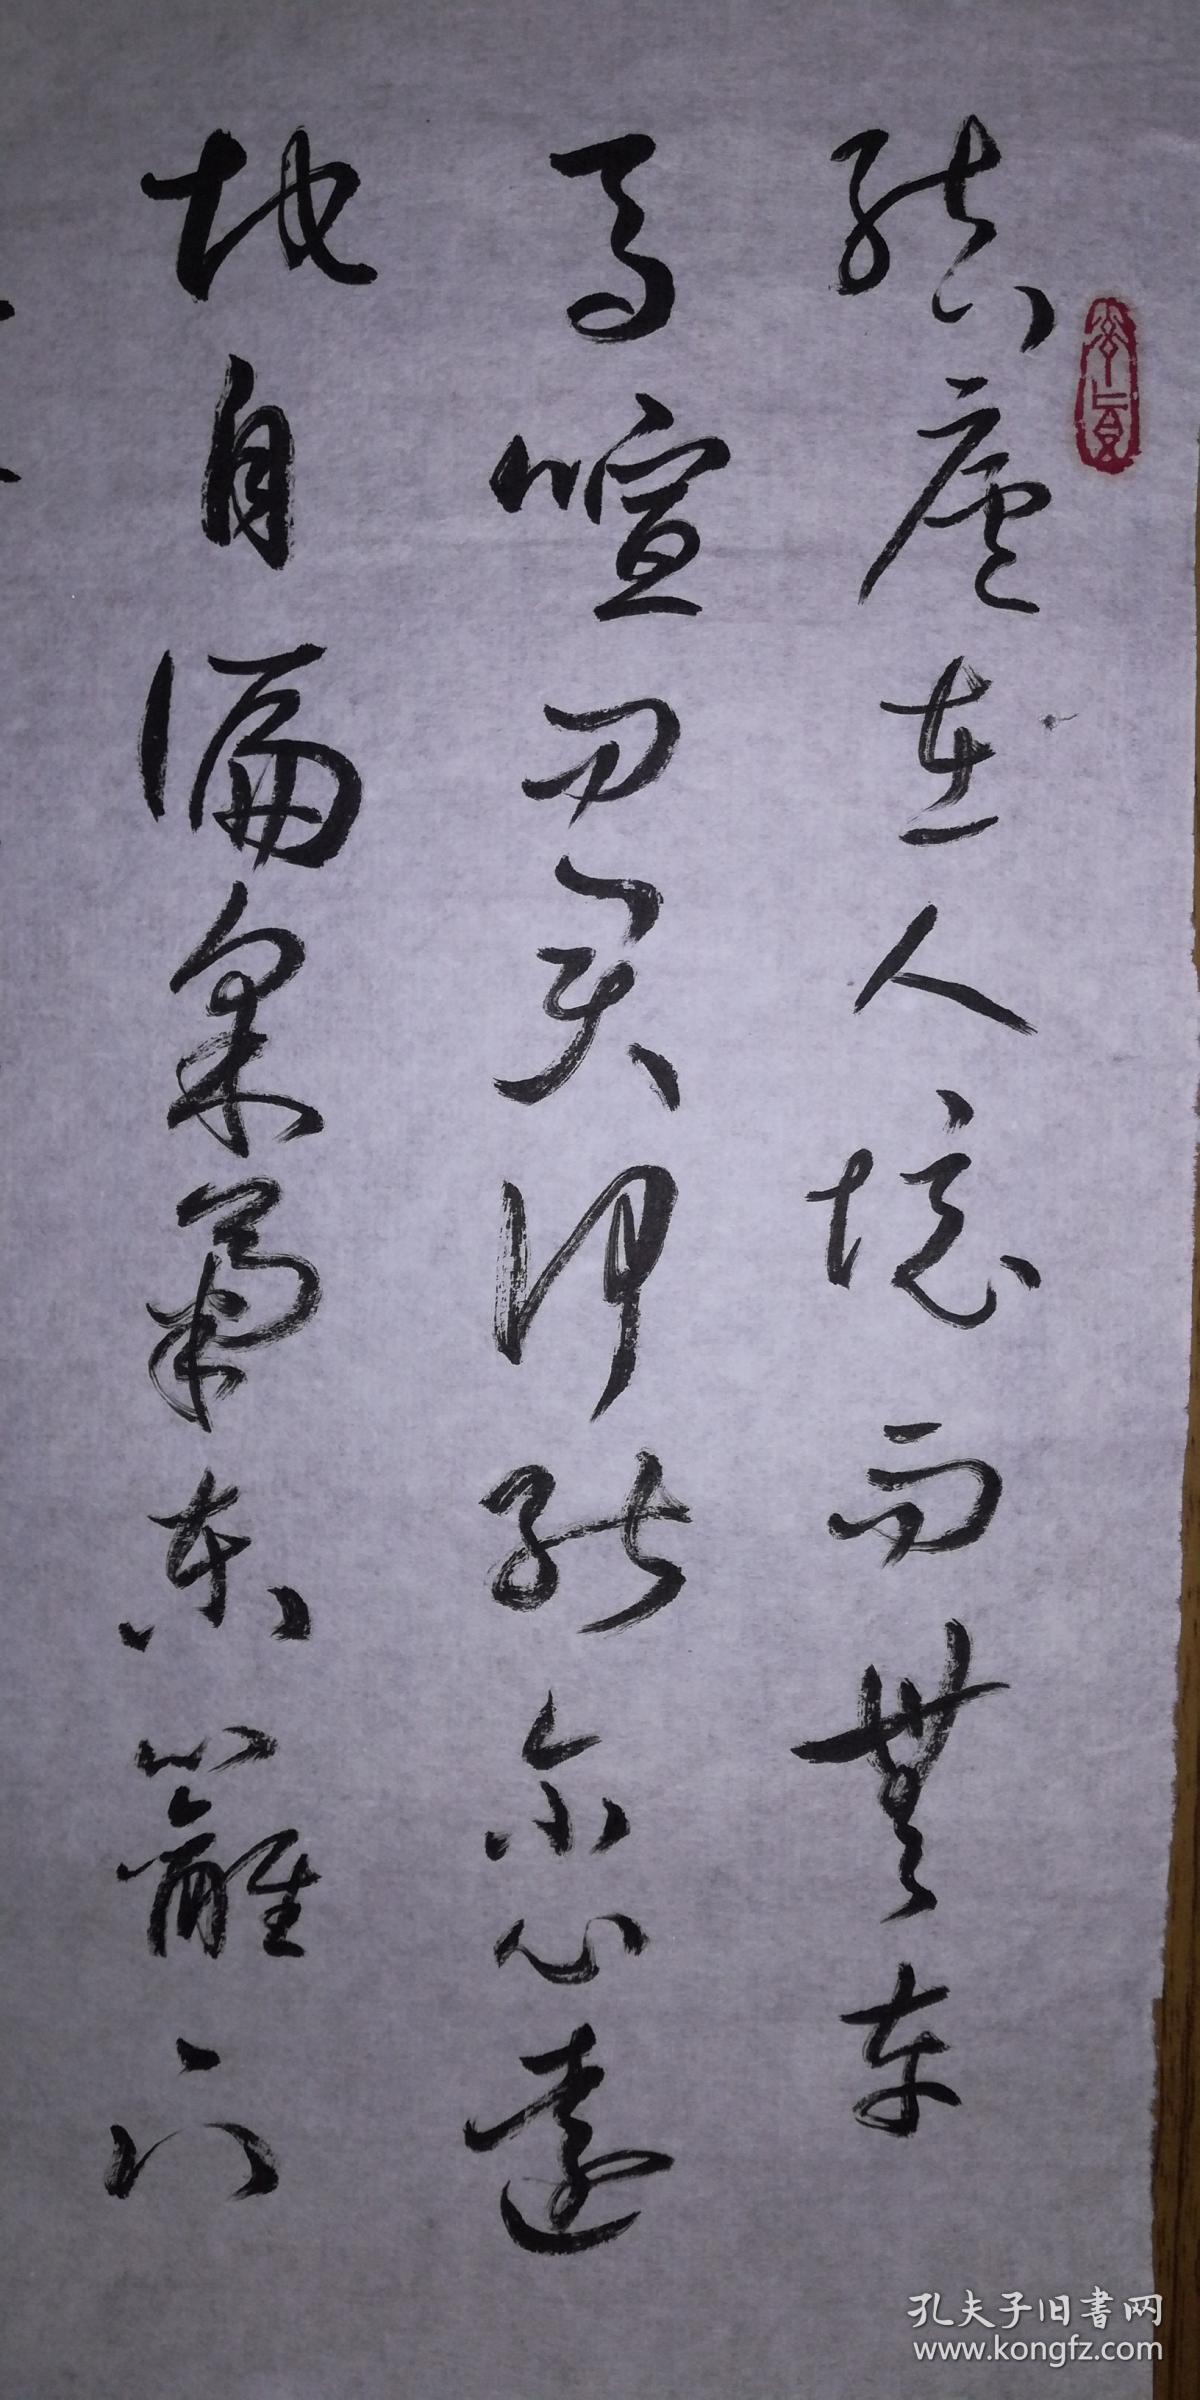 结庐在人境而無车
马喧问君何能尔心远
地自偏采菊东籬下
孔夫子旧書网
www.kongfz.com